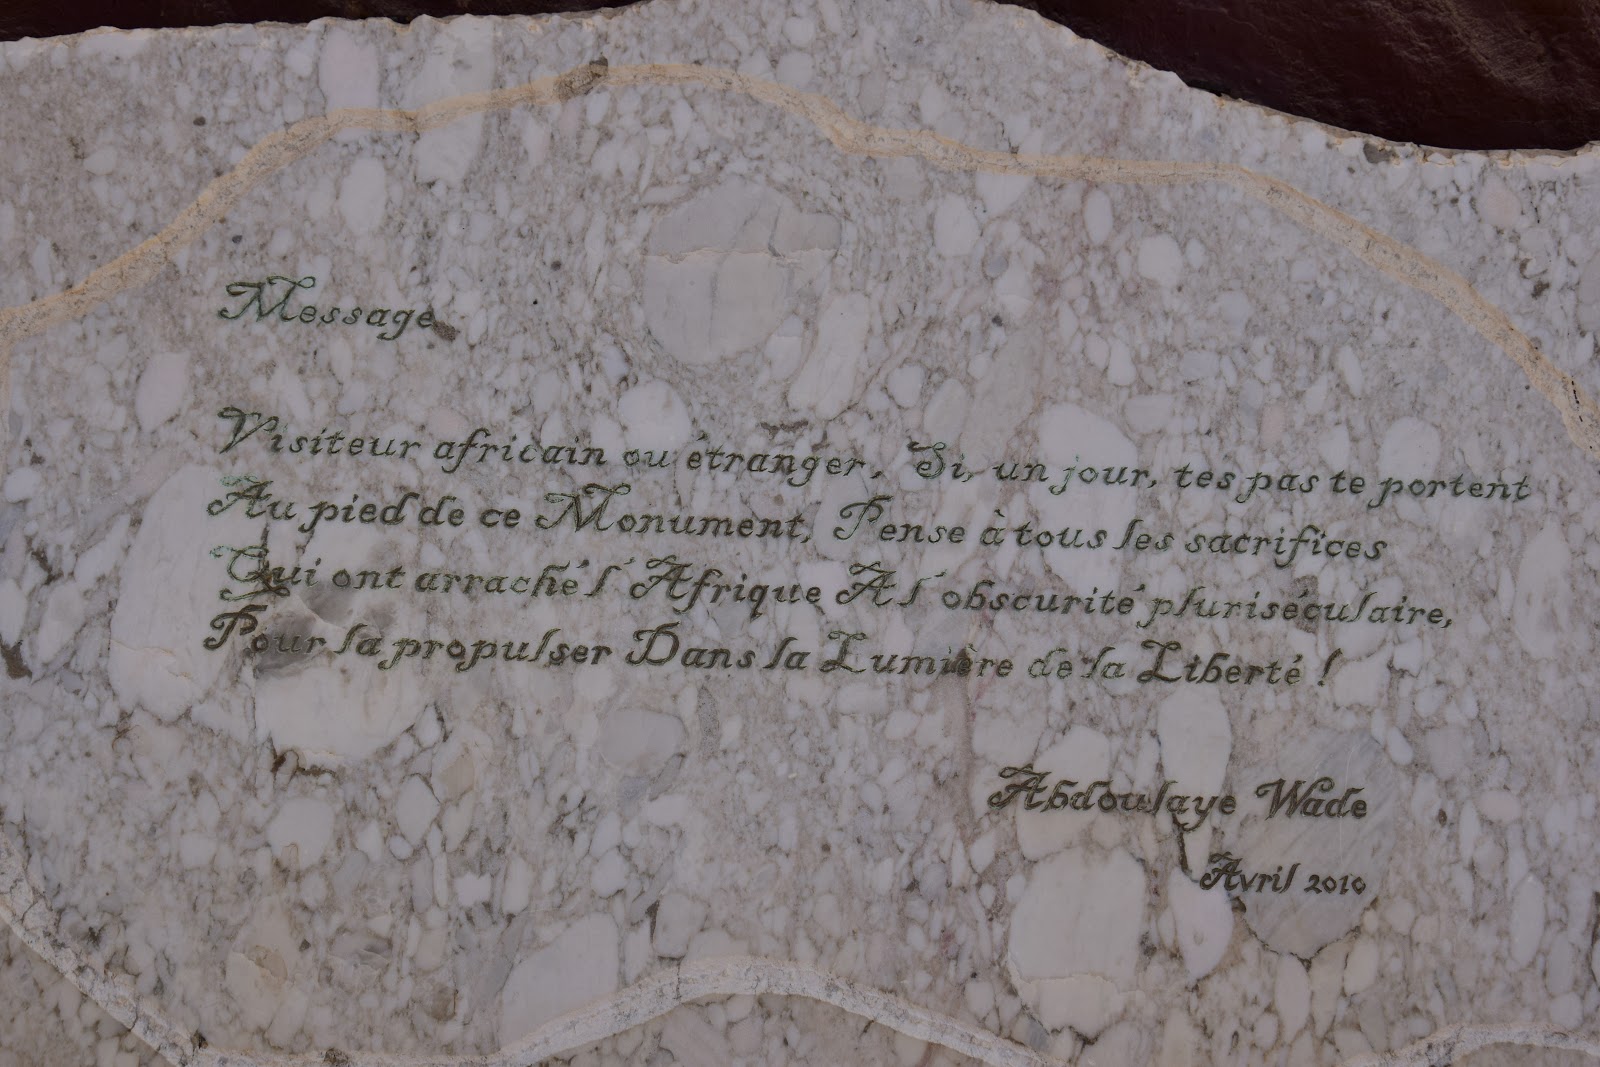 Message
Visiteur africain ou étranger, Si, un jour, tes pas te portent
Au pied de ce Monument, Pense à tous les sacrifices
Qui ont arraché l'Afrique A l'obscurité pluriséculaire,
Pour la propulser Dans la Lumière de la Liberté !
Abdoulaye Wade
Avril 2010